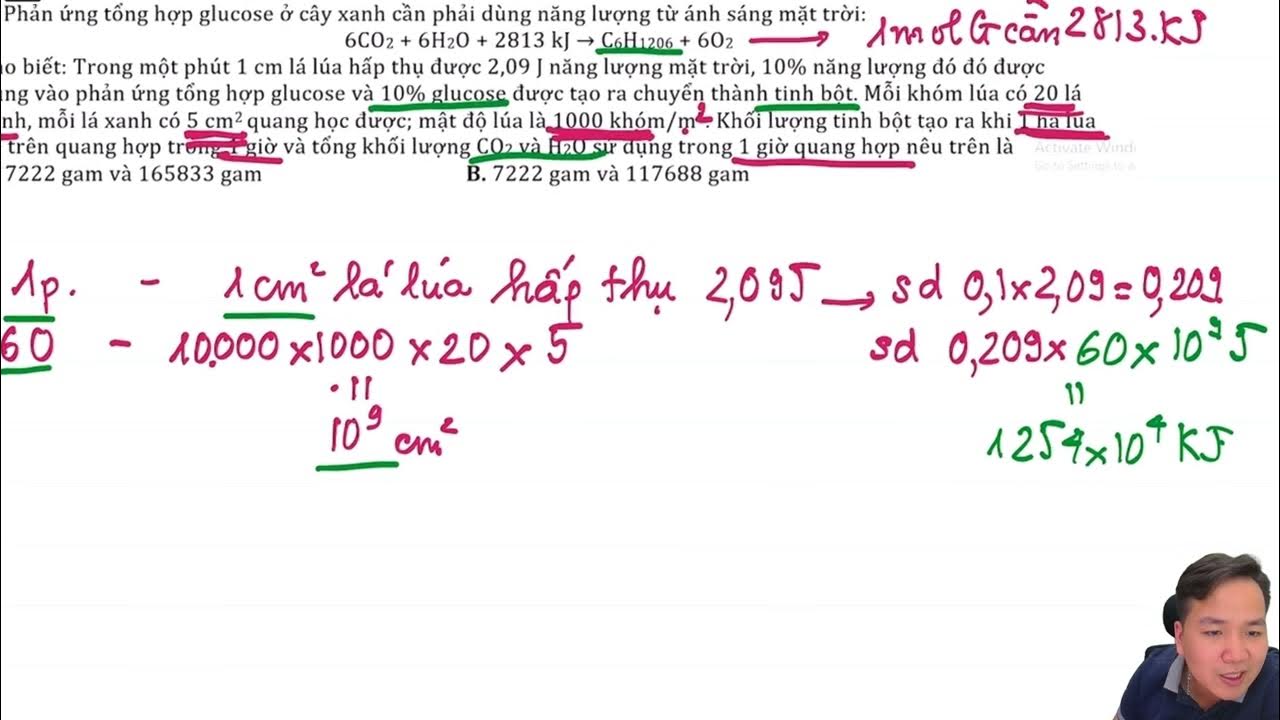 Phản ứng tổng hợp glucose ở cây xanh cần phải dùng năng lượng từ ánh sáng mặt trời:
6CO2 + 6H2O + 2813 kJ → C6H1206 + 6O2 → 1mol G cần 2813.KJ
o biết: Trong một phút 1 cm lá lúa hấp thụ được 2,09 J năng lượng mặt trời, 10% năng lượng đó đó được
ng vào phản ứng tổng hợp glucose và 10% glucose được tạo ra chuyển thành tinh bột. Mỗi khóm lúa có 20 lá
nh, mỗi lá xanh có 5 cm² quang học được; mật độ lúa là 1000 khóm/m². Khối lượng tinh bột tạo ra khi 1 ha lúa
trên quang hợp trong 1 giờ và tổng khối lượng CO2 và H2O sử dụng trong 1 giờ quang hợp nêu trên là
Activate Windi
Go to Settings to a
7222 gam và 165833 gam B. 7222 gam và 117688 gam
1p. - 1cm² lá lúa hấp thụ 2,09J → sd 0,1×2,09=0,209
60 - 10.000×1000×20×5 sd 0,209×60×10⁹J
= =
10⁹ cm² 1254×10⁴ KJ